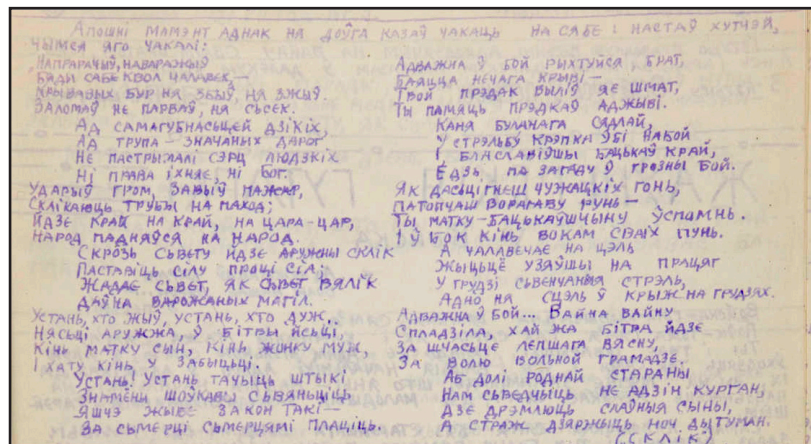 Апошні мамэнт аднак на доўга казаў чакаць на сябе і настаў хутчэй,
чымся яго чакалі:
Напрарочыў, наваражыў
Бяди сабе квол чалавек —
Крывавых бур ня збыў, ня зжыў.
Заломаў не парваў, ня сьсек.
Ад самагубнасьцей дзікіх,
Ад трупа — значаных дарог
Не пастрымалі сэрц людзкіх
Ні права іхняе, ні бог.
Ударыў гром, завыў пажар,
Склікаюць трубы на паход;
Йдзе край на край, на цара - цар,
Народ падняўся на народ.
Скрозь сьвету йдзе аружны склік
Паставіць сілу проці сіл;
Жадае сьвет, як сьвет вялік
Даўна варожаных магіл.
Устань, хто жыў, устань, хто дуж,
Нясьці аружжа, ў бітвы йсьці,
Кінь матку сын, кінь жонку муж,
І хату кінь у забыцьці.
Устань! Устань тачыць штыкі
Знамёны шоўкавы сьвянціць,
Яшчэ жыве закон такі —
За сьмерці сьмерцямі плаціць.
Адважна ў бой рыхтуйся, брат,
Баяцца нечага крыві —
Твой прэдак выліў яе шмат,
Ты памяць прэдкаў аджыві.
Каня буланага сядлай,
У стрэльбу крэпка ўбі набой
І, блаславіўшы бацькаў край,
Едзь, па загаду ў грозны бой.
Як дасьцігнеш чужацкіх гонь,
Патопчаш ворагаву рунь —
Ты матку-бацькаўшчыну ўспомнь.
І ў бок кінь вокам сваіх пунь.
А чалавечае на цэль
Жыцьцё узяўшы на працяг
У грудзі сьвенчаныя стрэль,
Адно ня сцэль ў крыж на грудзях.
Адважна ў бой... Вайна вайну
Спладзіла, хай жа бітва йдзе
За шчасьце лепшага вясну,
За волю вольнай грамадзе.
Аб долі роднай стараны
Нам сьведчыць не адзін курган,
Дзе дрэмлюць слаўныя сыны,
А страж дзяржыць ноч ды туман.